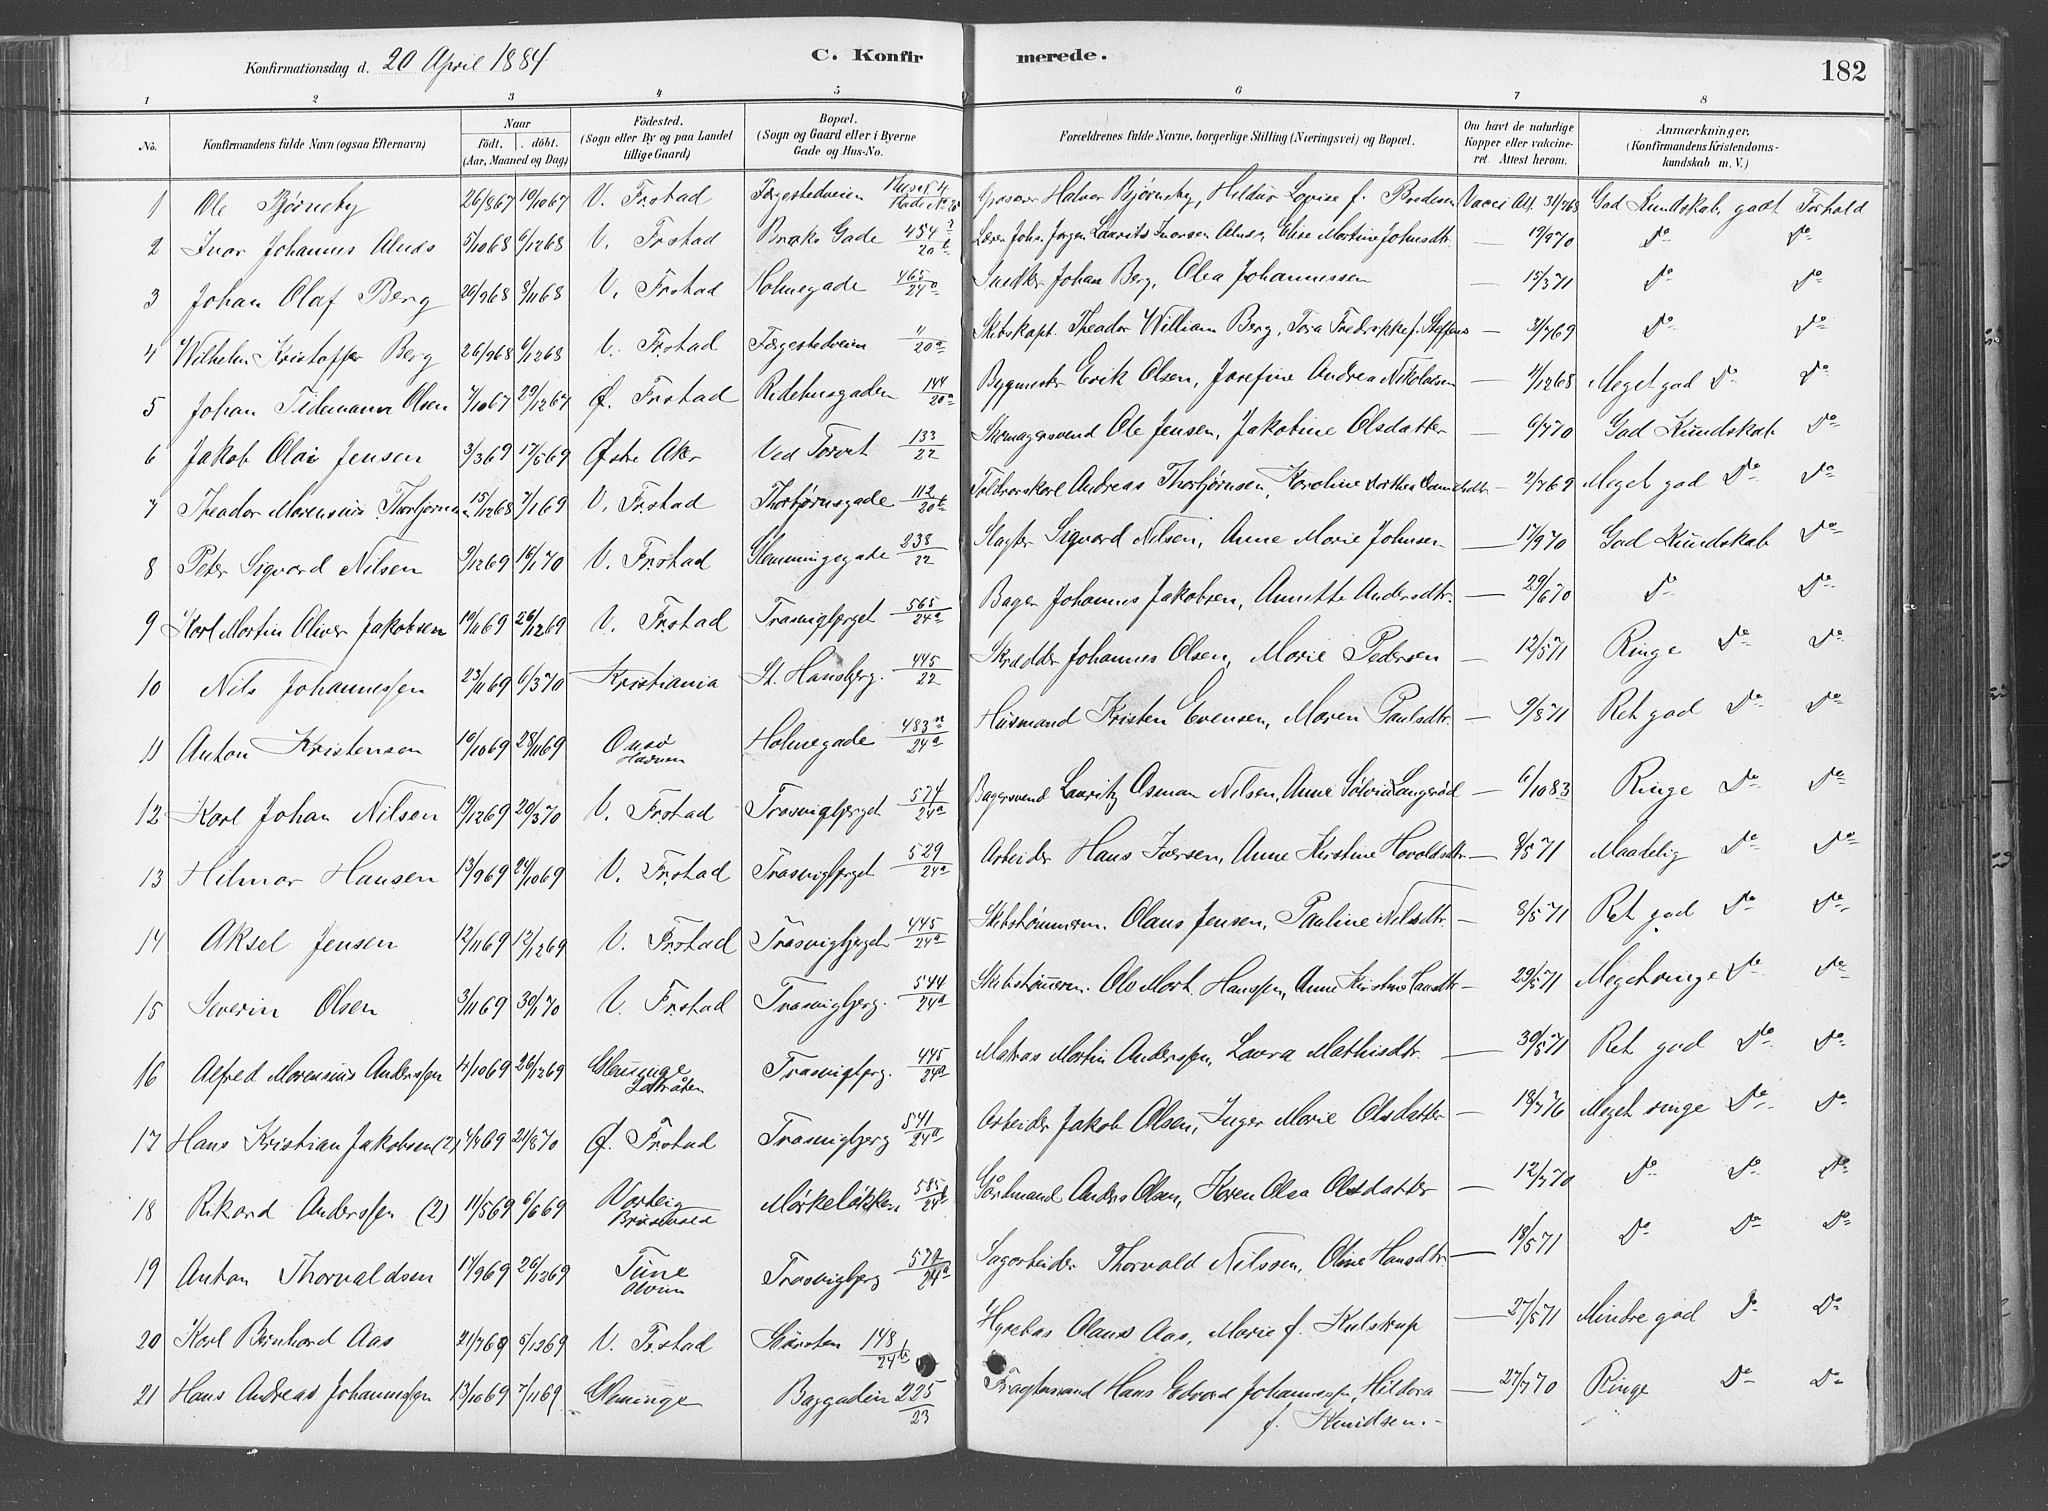 Konfirmationsdag d. 20 April 1884 C. Konfirmerede. 182
1 2 3 4 5 6 7 8
No. Konfirmandens fulde Navn (ogsaa Efternavn) Naar født. døbt. (Aar, Maaned og Dag) Fødested. (Sogn eller By og paa Landet tillige Gaard) Bopæl. (Sogn og Gaard eller i Byerne Gade og Hus-No. Forældrenes fulde Navne, borgerlige Stilling (Næringsvei) og Bopæl. Om havt de naturlige Kopper eller vakcineret. Attest herom. Anmærkninger. (Konfirmandens Kristendomskundskab m. V.)
1 Ole Bjørneby 26/8 67 10/10 67 V. Frstad Færgestedveien Grosserer Halvor Bjørneby, Hildur Lovise f. Bredesen Vacci At. 31/7 68 God Kundskab, godt Forhold
2 Ivar Johannes Alnæs 5/10 68 6/12 68 V. Frstad Broks Gade 454/20b Johs. Jørgen Laurits Ivarsen Alnæs, Elise Martine Johnsdtr. — 19/9 70 Do Do
3 Johan Olaf Berg 20/9 68 8/11 68 V. Frstad Holmegade 465/24a Snedker Johan Berg, Olea Johannessen — 15/3 71 Do Do
4 Wilhelm Kristoffer Berg 26/9 68 6/12 68 V. Frstad Færgestedveien "/20a Skibskapt. Theodor William Berg, Tora Fredrikke f. Steffens — 31/7 69 Do Do
5 Johan Tidemann Olsen 7/10 67 29/12 67 Ø. Frstad Ridehusgaden 144/20a Bygmester Erik Olsen, Josefine Andrea Nikolaisen — 4/12 68 Meget god Do Do
6 Jakob Olai Jensen 3/3 69 17/5 69 Østre Aker Ved Torvet 133/22 Skomagersvend Ole Jensen, Jakobine Olsdatter — 6/7 70 God Kundskab Do
7 Theodor Marensius Thorbjørnsen 15/12 68 7/1 69 V. Frstad Thorbjørnsgade 112/20b Toldvorskarl Andreas Thorbjørnsen, Karoline Dorthea Danielsdtr — 2/7 69 Meget god Do Do
8 Peter Sigvard Nilsen 9/12 69 16/1 70 V. Frstad Glemmingegade 238/22 Slagter Sigvard Nilsen, Anne Marie Johnsen — 17/9 70 God Kundskab Do
9 Karl Martin Oliver Jakobsen 19/11 69 26/12 69 V. Frstad Trasvigbjerget 565/24a Bager Johannes Jakobsen, Annette Andersdtr. — 29/6 70 Do Do
10 Nils Johannessen 23/11 69 6/3 70 Kristiania St. Hansbjerg. 445/22 Skrædder Johannes Olsen, Marie Pedersen — 12/5 71 Ringe Do Do
11 Anton Kristensen 19/10 69 28/11 69 Onsø Holmegade 483/24a Husmand Kristen Evensen, Maren Paulsdtr. — 9/8 71 Ret god Do Do
12 Karl Johan Nilsen 19/12 69 20/3 70 V. Frstad Trasvigbjerget 574/24a Bagersvend Lauritz Osman Nilsen, Anne Sølvia Langerød — 6/10 83 Ringe Do Do
13 Hilmar Hansen 13/9 69 24/10 69 V. Frstad Trasvigbjerget 529/24a Arbeider Hans Iversen, Anne Kirstine Havoldsdtr — 8/5 71 Maadelig Do Do
14 Aksel Jensen 12/11 69 12/12 69 V. Frstad Trasvigbjerget 445/24a Skibstømmerm. Olaus Jensen, Pauline Nilsdtr. — 8/5 71 Ret god Do Do
15 Severin Olsen 3/11 69 30/1 70 V. Frstad Trasvigbjerg. 544/24a Skibstømmerm. Ole Mort. Hanssen, Anne Kirstine Hansdtr — 29/5 71 Meget ringe Do Do
16 Alfred Marensius Anderssen 12/10 69 26/12 69 Glemminge Trasvigbjerg. 445/24a Matros Martin Anderssen, Laura Mathisdtr. — 30/5 71 Ret god Do Do
17 Hans Kristian Jakobsen (2) 4/7 69 21/8 70 Ø. Frstad Trasvigbjerg 541/24a Arbeider Jakob Olsen, Inger Marie Olsdatter — 18/7 76 Meget ringe Do Do
18 Rikard Anderssen (2) 11/5 69 6/6 69 Varteig Mørkeløkken 585/24b Gårdmand Anders Olsen, Karen Olea Olsdatter — 12/7 70 Do Do Do
19 Anton Thorvaldsen 17/9 69 26/12 69 Tune Alvim Trasvigbjerg 570/24a Sagarbeider Thorvald Nilssen, Oline Hansdtr. — 18/5 71 Do Do Do
20 Karl Bernhard Aas 21/7 69 5/12 69 V. Frstad 148/24b Hyrebas Olaus Aas, Marie f. Kulstrup — 27/5 71 Mindre god Do Do
21 Hans Andreas Johannessen 13/10 69 7/11 69 Glemminge Baggaden 225/23 Fragtemand Hans Edvard Johannessen, Hildora f. Knudsen. — 27/7 70 Ringe Do Do